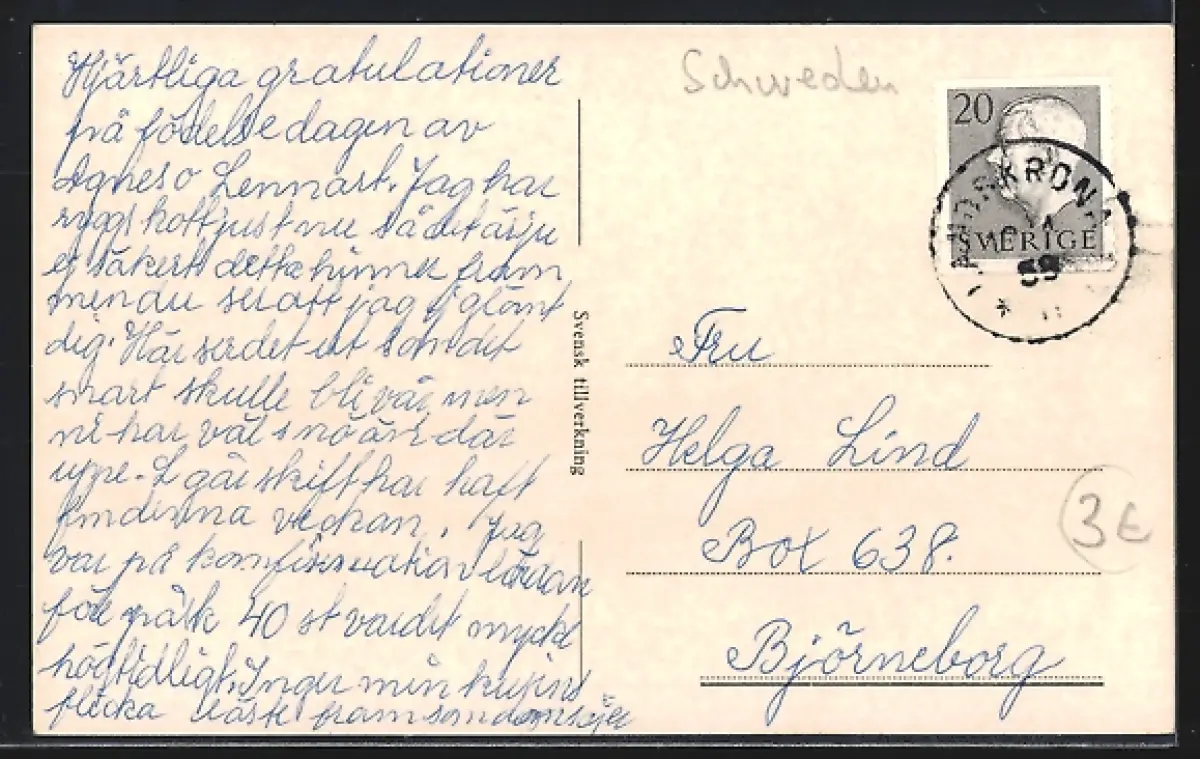 Hjärtliga gratulationer
på födelsedagen av
Agnes o Lennart. Jag har
just nu så det är ju
ej säkert detta hinner fram
men du ser att jag ej glömt
dig. Här ser det ut som det
snart skulle bli vår men
ni har väl snö än där
uppe. L går skift har haft
fm denna veckan. Jag
var på
före påsk 40 st var det mycke
högtidligt. Inger min
flicka läste fram som
Schweden
20
SVERIGE
LANDSKRONA
59
Svensk tillverkning
Fru
Helga Lind
Box 638.
Björneborg
3 €